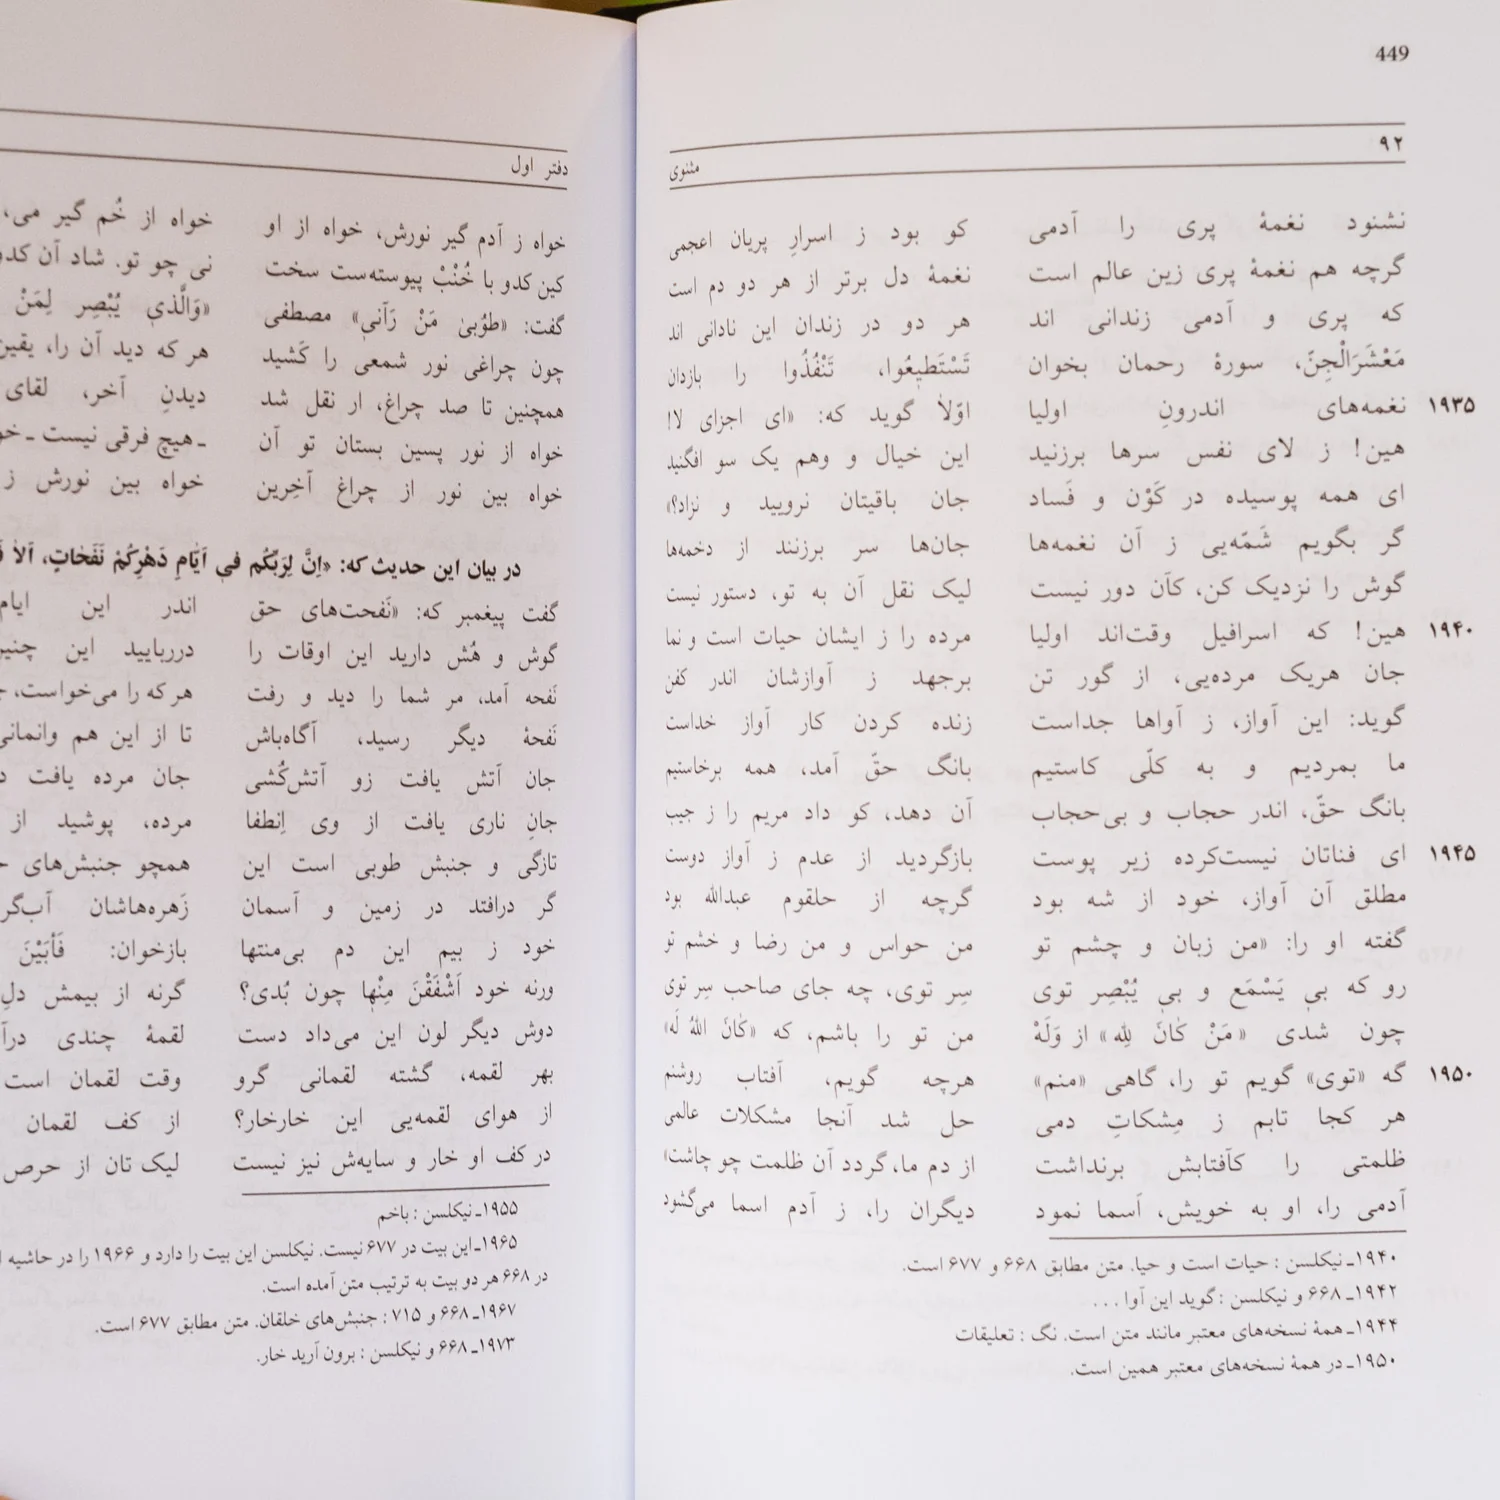 449
۹۲
مثنوی
نشنود نغمهٔ پری را آدمی کو بود ز اسرارِ پریان اعجمی
گرچه هم نغمهٔ پری زین عالم است نغمهٔ دل برتر از هر دو دم است
که پری و آدمی زندانی اند هر دو در زندان این نادانی اند
مَعْشَرَالْجِنّ، سورهٔ رحمان بخوان تَسْتَطیعُوا، تَنْفُذُوا را بازدان
۱۹۳۵ نغمه‌های اندرونِ اولیا اوّلاً گوید که: «ای اجزای لا!
هین! ز لای نفس سرها برزنید این خیال و وهم یک سو افگنید
ای همه پوسیده در کَوْن و فَساد جان باقیتان نرویید و نزاد؟»
گر بگویم شَمّه‌یی ز آن نغمه‌ها جان‌ها سر برزنند از دخمه‌ها
گوش را نزدیک کن، کآن دور نیست لیک نقل آن به تو، دستور نیست
۱۹۴۰ هین! که اسرافیل وقت‌اند اولیا مرده را ز ایشان حیات است و نما
جان هریک مرده‌یی، از گور تن برجهد ز آوازشان اندر کفن
گوید: این آواز، ز آواها جداست زنده کردن کار آواز خداست
ما بمردیم و به کلّی کاستیم بانگ حقّ آمد، همه برخاستیم
بانگ حقّ، اندر حجاب و بی‌حجاب آن دهد، کو داد مریم را ز جیب
۱۹۴۵ ای فناتان نیست‌کرده زیر پوست بازگردید از عدم ز آواز دوست
مطلق آن آواز، خود از شه بود گرچه از حلقوم عبدالله بود
گفته او را: «من زبان و چشم تو من حواس و من رضا و خشم تو
رو که بی یَسْمَع و بی یُبْصِر توی سِر توی، چه جای صاحب سِر توی
چون شدی «مَنْ کٰانَ لِلّه» از وَلَهْ من تو را باشم، که «کٰانَ اللهُ لَه»
۱۹۵۰ گه «توی» گویم تو را، گاهی «منم» هرچه گویم، آفتاب روشنم
هر کجا تابم ز مِشکاتِ دمی حل شد آنجا مشکلات عالمی
ظلمتی را کآفتابش برنداشت از دم ما، گردد آن ظلمت چو چاشت»
آدمی را، او به خویش، اَسما نمود دیگران را، ز آدم اسما می‌گشود
۱۹۴۰ـ نیکلسن : حیات است و حیا. متن مطابق ۶۶۸ و ۶۷۷ است.
۱۹۴۲ـ ۶۶۸ و نیکلسن : گوید این آوا ...
۱۹۴۴ـ همهٔ نسخه‌های معتبر مانند متن است. نگ : تعلیقات
۱۹۵۰ـ در همهٔ نسخه‌های معتبر همین است.
دفتر اول
خواه ز آدم گیر نورش، خواه از او خواه از خُم گیر می،
کین کدو با خُنْبْ پیوسته‌ست سخت نی چو تو. شاد آن
گفت: «طوُبیٰ مَنْ رَآنی» مصطفی «وَالَّذی یُبْصِر لِمَنْ
چون چراغی نور شمعی را کَشید هر که دید آن را، یقین
همچنین تا صد چراغ، ار نقل شد دیدنِ آخر، لقای
خواه از نور پسین بستان تو آن ـ هیچ فرقی نیست ـ
خواه بین نور از چراغ آخِرین خواه بین نورش ز
در بیان این حدیث که: «اِنَّ لِرَبِّکُم فی اَیّٰامِ دَهْرِکُمْ نَفَحٰاتٍ، اَلاٰ
گفت پیغمبر که: «نَفحت‌های حق اندر این ایام
گوش و هُش دارید این اوقات را درربایید این
نَفحه آمد، مر شما را دید و رفت هر که را می‌خواست،
نَفحهٔ دیگر رسید، آگاه‌باش تا از این هم وانمانی
جان آتش یافت زو آتش‌کُشی جان مرده یافت
جانِ ناری یافت از وی اِنطفا مرده، پوشید از
تازگی و جنبش طوبی است این همچو جنبش‌های
گر درافتد در زمین و آسمان زَهره‌هاشان
خود ز بیم این دم بی‌منتها بازخوان: فَاَبَیْنَ
ورنه خود اَشْفَقْنَ مِنْها چون بُدی؟ گرنه از بیمش دلِ
دوش دیگر لون این می‌داد دست لقمهٔ چندی
بهر لقمه، گشته لقمانی گرو وقت لقمان است
از هوای لقمه‌یی این خارخار؟ از کف لقمان
در کف او خار و سایه‌ش نیز نیست لیک تان از حرص
۱۹۵۵ـ نیکلسن : باخم
۱۹۶۵ـ این بیت در ۶۷۷ نیست. نیکلسن این بیت را دارد و ۱۹۶۶ را در حاشیه
در ۶۶۸ هر دو بیت به ترتیب متن آمده است.
۱۹۶۷ـ ۶۶۸ و ۷۱۵ : جنبش‌های خلقان. متن مطابق ۶۷۷ است.
۱۹۷۳ـ ۶۶۸ و نیکلسن : برون آرید خار.